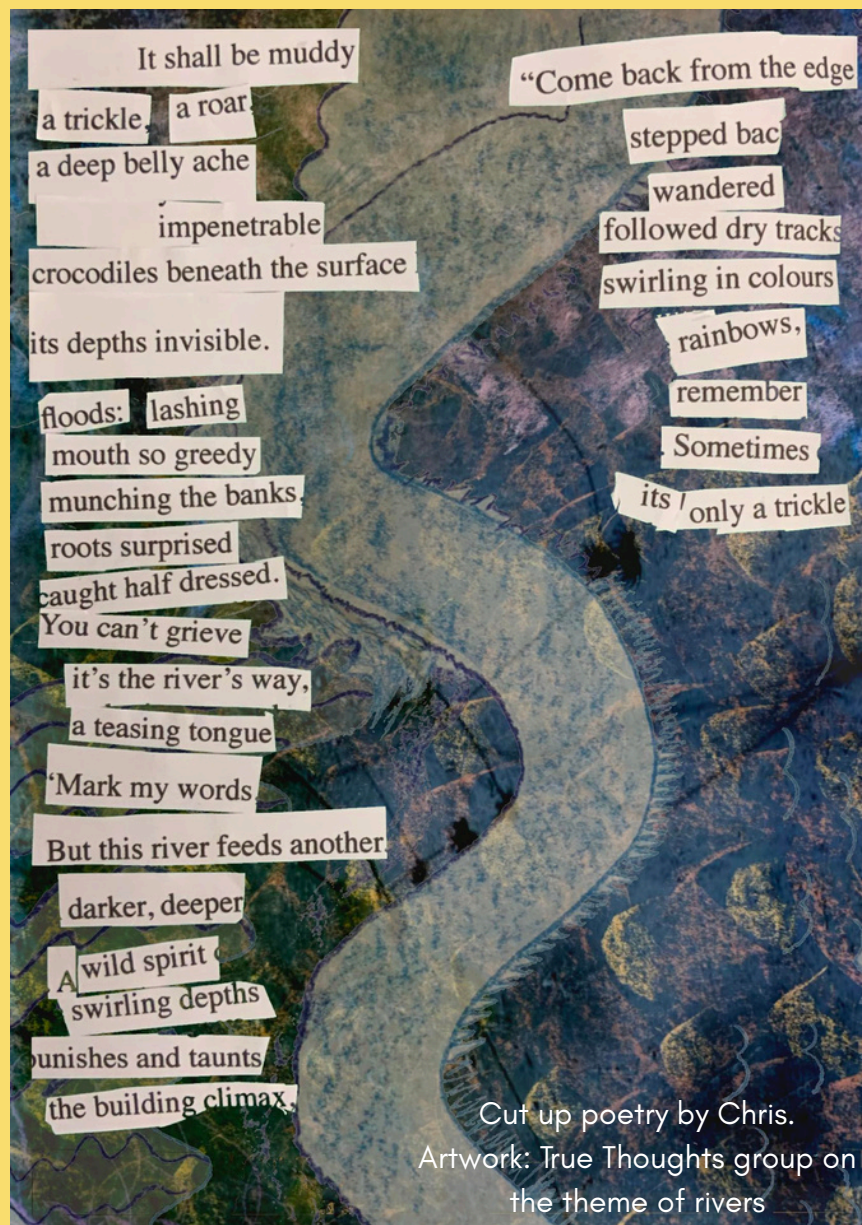 It shall be muddy
a trickle, a roar
a deep belly ache
impenetrable
crocodiles beneath the surface
its depths invisible.
floods: lashing
mouth so greedy
munching the banks,
roots surprised
caught half dressed.
You can't grieve
it's the river's way,
a teasing tongue
'Mark my words
But this river feeds another
darker, deeper
A wild spirit
swirling depths
punishes and taunts
the building climax,
“Come back from the edge
stepped bac
wandered
followed dry tracks
swirling in colours
rainbows,
remember
. Sometimes
its only a trickle
Cut up poetry by Chris.
Artwork: True Thoughts group on
the theme of rivers